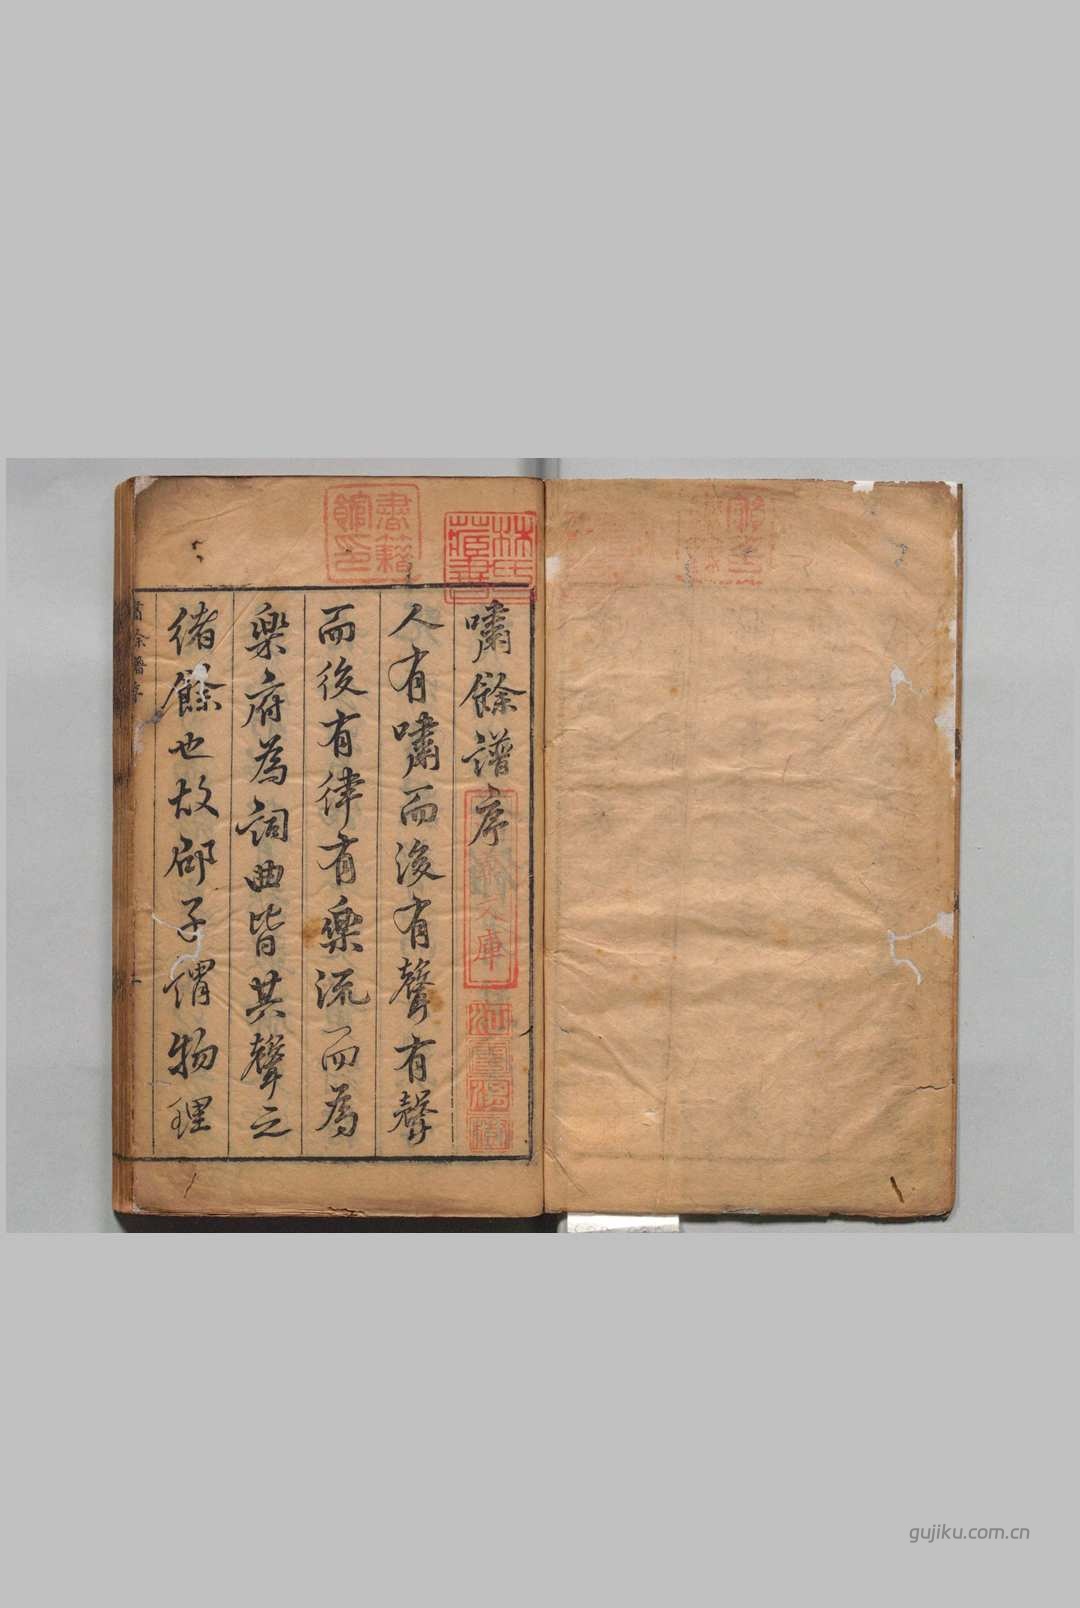 嘯餘譜序
人有嘯而後有聲有聲
而後有律有樂流而為
樂府為詞曲皆其聲之
緒餘也故邵子謂物理
書籍館印
林氏藏書
文庫
嘯余譜序
一
gujiku.com.cn